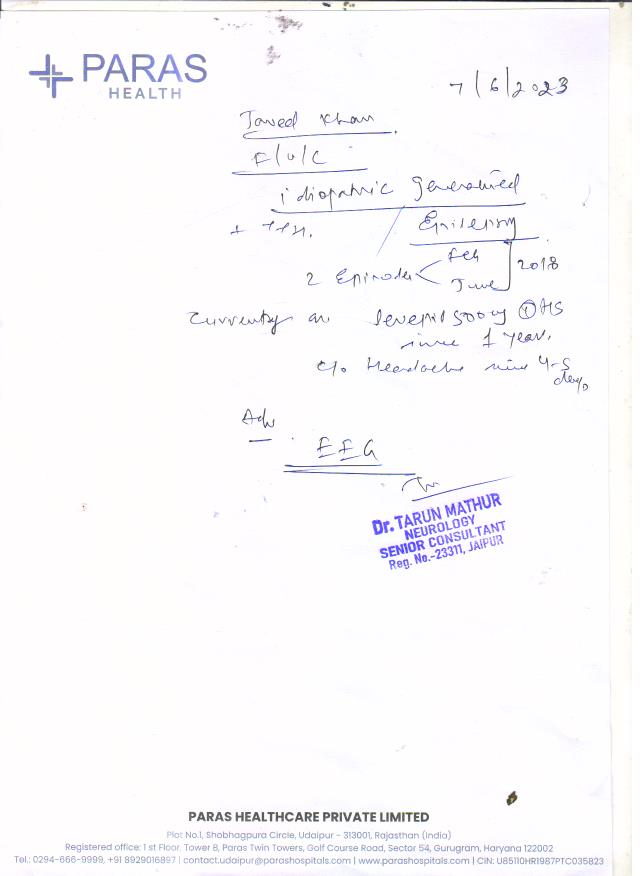 PARAS
HEALTH
7/6/2023
Javed Khan
F/U/C
idiopathic Generalised
Epilepsy
2 Episodes Feb
June 2018
Currently on Levepil 500 mg HS
since 1 year.
c/o Headache since 4-5
days
Adv
EEG
Dr. TARUN MATHUR
NEUROLOGY
SENIOR CONSULTANT
Reg. No.-23311, JAIPUR
PARAS HEALTHCARE PRIVATE LIMITED
Plot No.1, Shobhagpura Circle, Udaipur - 313001, Rajasthan (India)
Registered office: 1 st Floor, Tower B, Paras Twin Towers, Golf Course Road, Sector 54, Gurugram, Haryana 122002
Tel.: 0294-666-9999, +91 8929016897 | contact.udaipur@parashospitals.com | www.parashospitals.com | CIN: U85110HR1987PTC035823